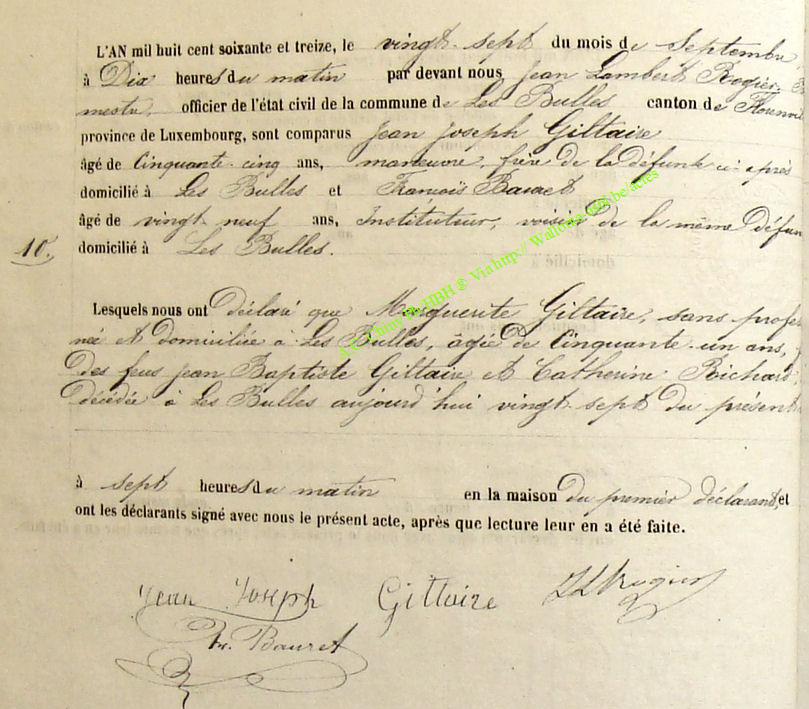 L'AN mil huit cent soixante et treize, le vingt-sept du mois de Septembre
à Dix heures du matin par devant nous Jean Lambert Rogier,
mestre, officier de l'état civil de la commune de Les Bulles canton de Florenvil
province de Luxembourg, sont comparus Jean Joseph Giltaire
âgé de Cinquante-cinq ans, manœuvre, frère de la défunte ci-après
domicilié à Les Bulles et François Bauret
âgé de vingt-neuf ans, Instituteur, voisin de la même défun
10. domicilié à Les Bulles.
Lesquels nous ont déclaré que Marguerite Giltaire, sans profes
née et domiciliée à Les Bulles, âgée de Cinquante-un ans,
des feus Jean Baptiste Giltaire et Catherine Richard,
décédée à Les Bulles aujourd'hui vingt-sept du présent
à sept heures du matin en la maison du premier déclarant, et
ont les déclarants signé avec nous le présent acte, après que lecture leur en a été faite.
Jean Joseph Giltaire JLRogier
Fr. Bauret